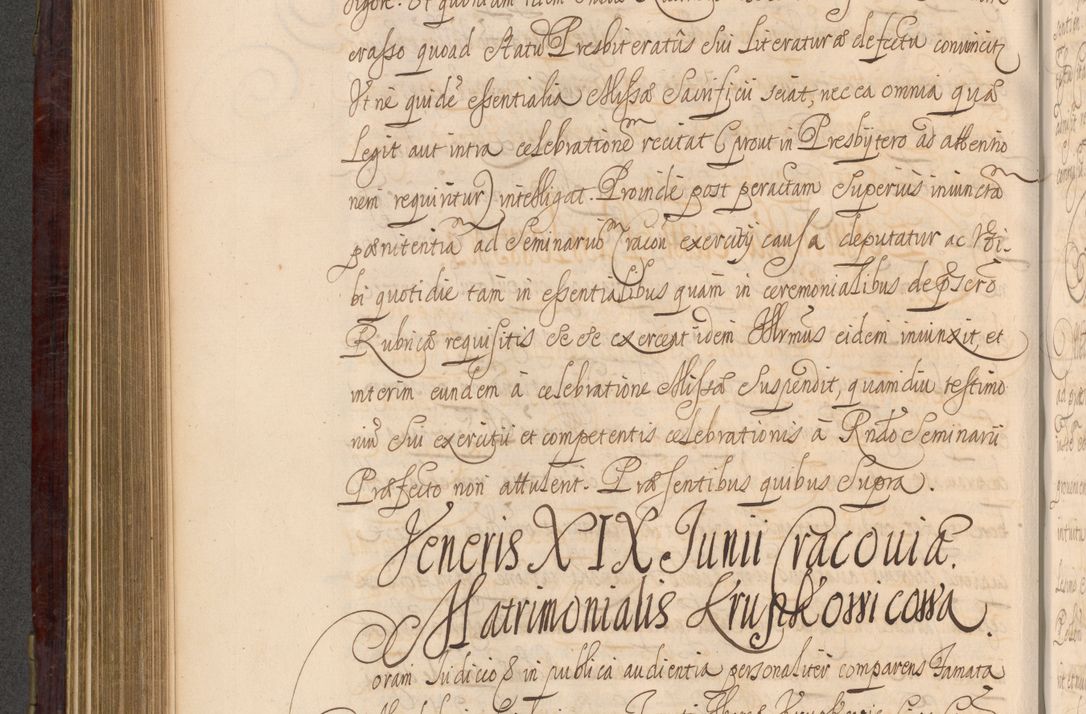 erasso quoad Statũ Presbiteratûs sui Literaturæ defectu convincit
Vt nè quidẽ essentialia Missæ Sacrificii sciat, nec ea omnia quæ
Legit aut intra celebrationem recitat (prout in Presbytero ad attentio
nem requiritur) intelligat. Proinde post peractam superiùs iniuncta
pænitentiam ad Seminariũ Cracoũ exercitÿ causa deputatur ac
bi quotidie tam in essentialibus quàm in ceremonialibus de
Rubricæ requisitis se se exerceat idem Illrmus eidem iniunxit, et
interim eundem à celebratione Missæ suspendit, quamdiu testimo
niũ sui exercitii et competentis celebrationis à Rndo Seminarii
Præfecto non attulerit. Præsentibus quibus supra.
Veneris XIX Junii Cracoviæ.
Matrimonialis Krupkowicowa.
Coram Judicio in publica audientia personaliter comparens Famata